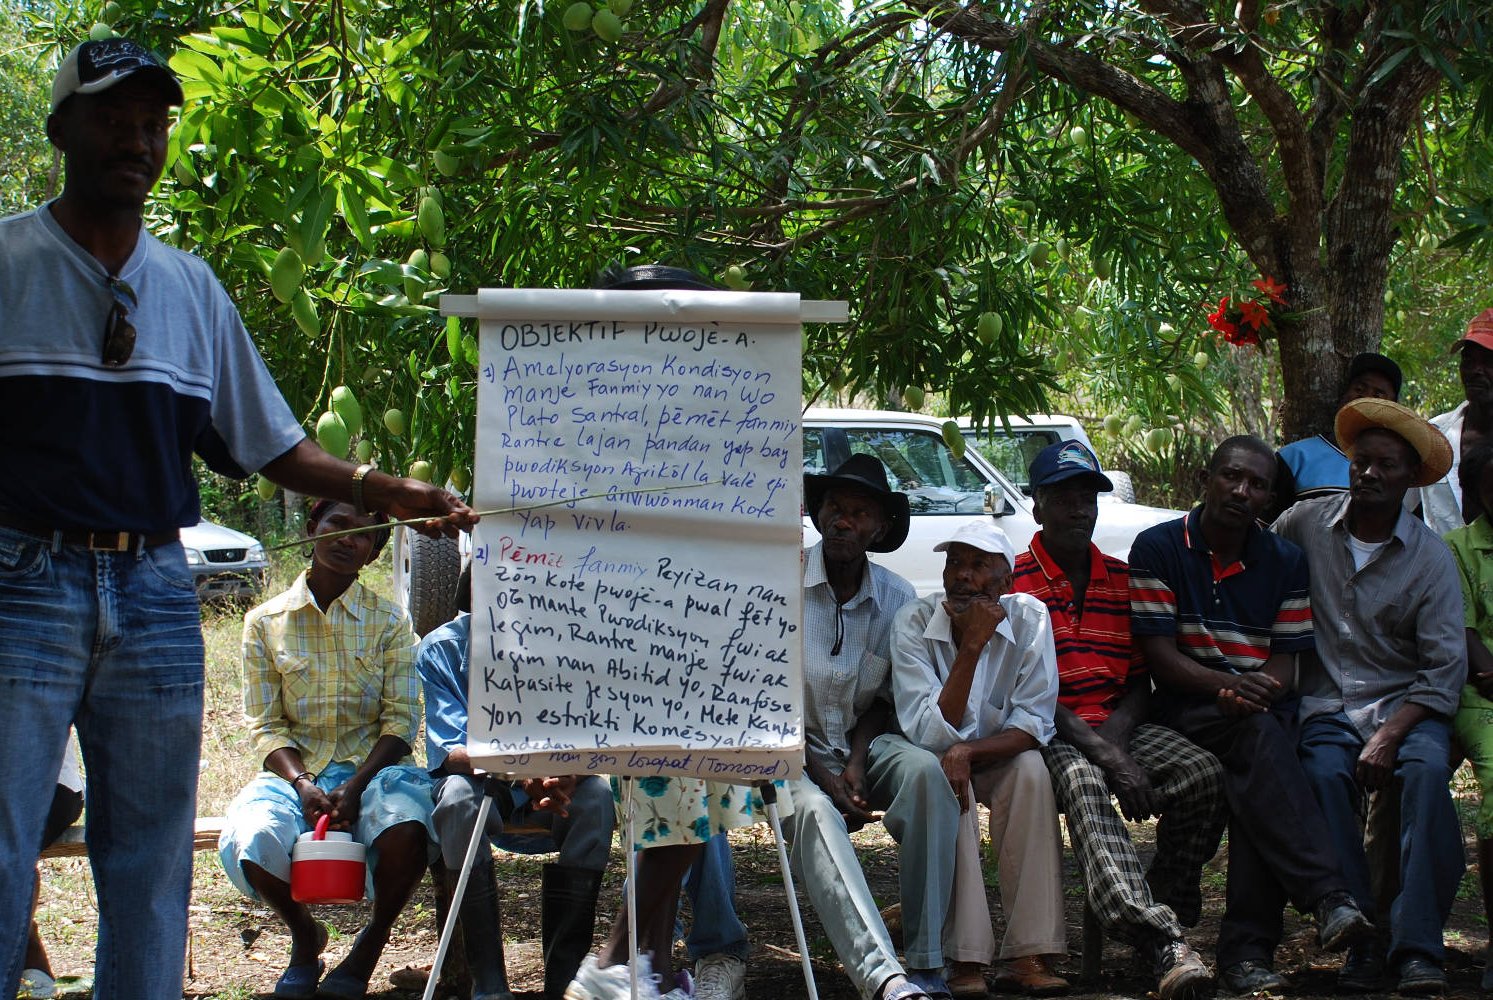 OBJEKTIF PWOJÈ-A.
1) Amelyorasyon Kondisyon
manje Fanmiy yo nan Wo
Plato Santral, pèmèt fanmiy
Rantre lajan pandan yap bay
pwodiksyon Agrikòl la valè epi
pwoteje anviwònman Kote
yap viv la.
2) Pèmèt fanmiy Peyizan nan
zòn Kote pwojè-a pwal fèt yo
Ogmante Pwodiksyon fwi ak
legim, Rantre manje fwi ak
legim nan Abitid yo, Ranfòse
Kapasite jesyon yo, Mete Kanpe
yon estrikti Komèsyalizas
andedan
nan zòn (Tomond)